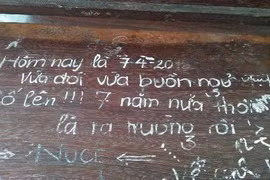 Hôm nay là 7-4-20
Vừa đói vừa buồn ngủ
ố lên!!! 7 năm nữa thôi
là ra trường rồi